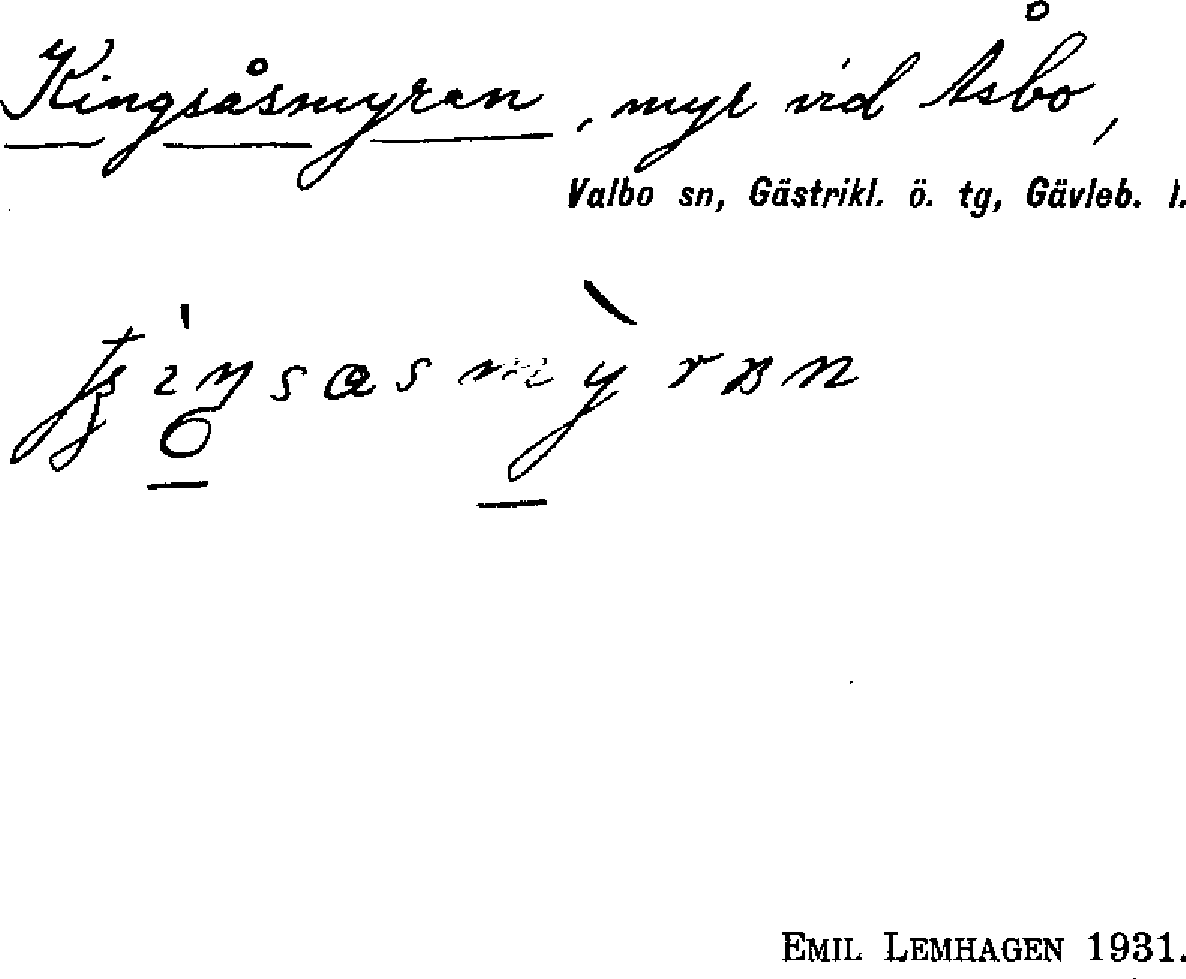 Kingsåsmyran, myr vid Åsbo,
Valbo sn, Gästrikl. ö. tg, Gävleb. l.
EMIL LEMHAGEN 1931.